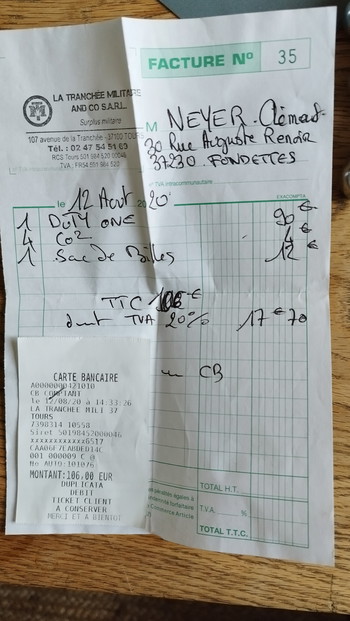 LA TRANCHÉE MILITAIRE
AND CO S.A.R.L.
Surplus militaire
107 avenue de la Tranchée - 37100 TOURS
Tél. : 02 47 54 51 63
FACTURE N° 35
M NEYER Clément
30 Rue Auguste Renoir
37230 FONDETTES
N° TVA intracommunautaire
le 12 Août 2020
EXACOMPTA
1 DUTY ONE 90 €
4 CO2 4 €
1 Sac de Billes 12 €
TTC 106 €
dont TVA 20% 17 € 70
CB
CARTE BANCAIRE
A0000000421010
CB COMPTANT
le 12/08/20 a 14:33:26
LA TRANCHEE MILI 37
TOURS
7398314 10558
Siret 50198452000046
xxxxxxxxxxxx6517
001 000009 C @
No AUTO:101076
MONTANT:106.00 EUR
DUPLICATA
DEBIT
TICKET CLIENT
A CONSERVER
MERCI ET A BIENTOT
TOTAL H.T.
T.V.A. %
TOTAL T.T.C.